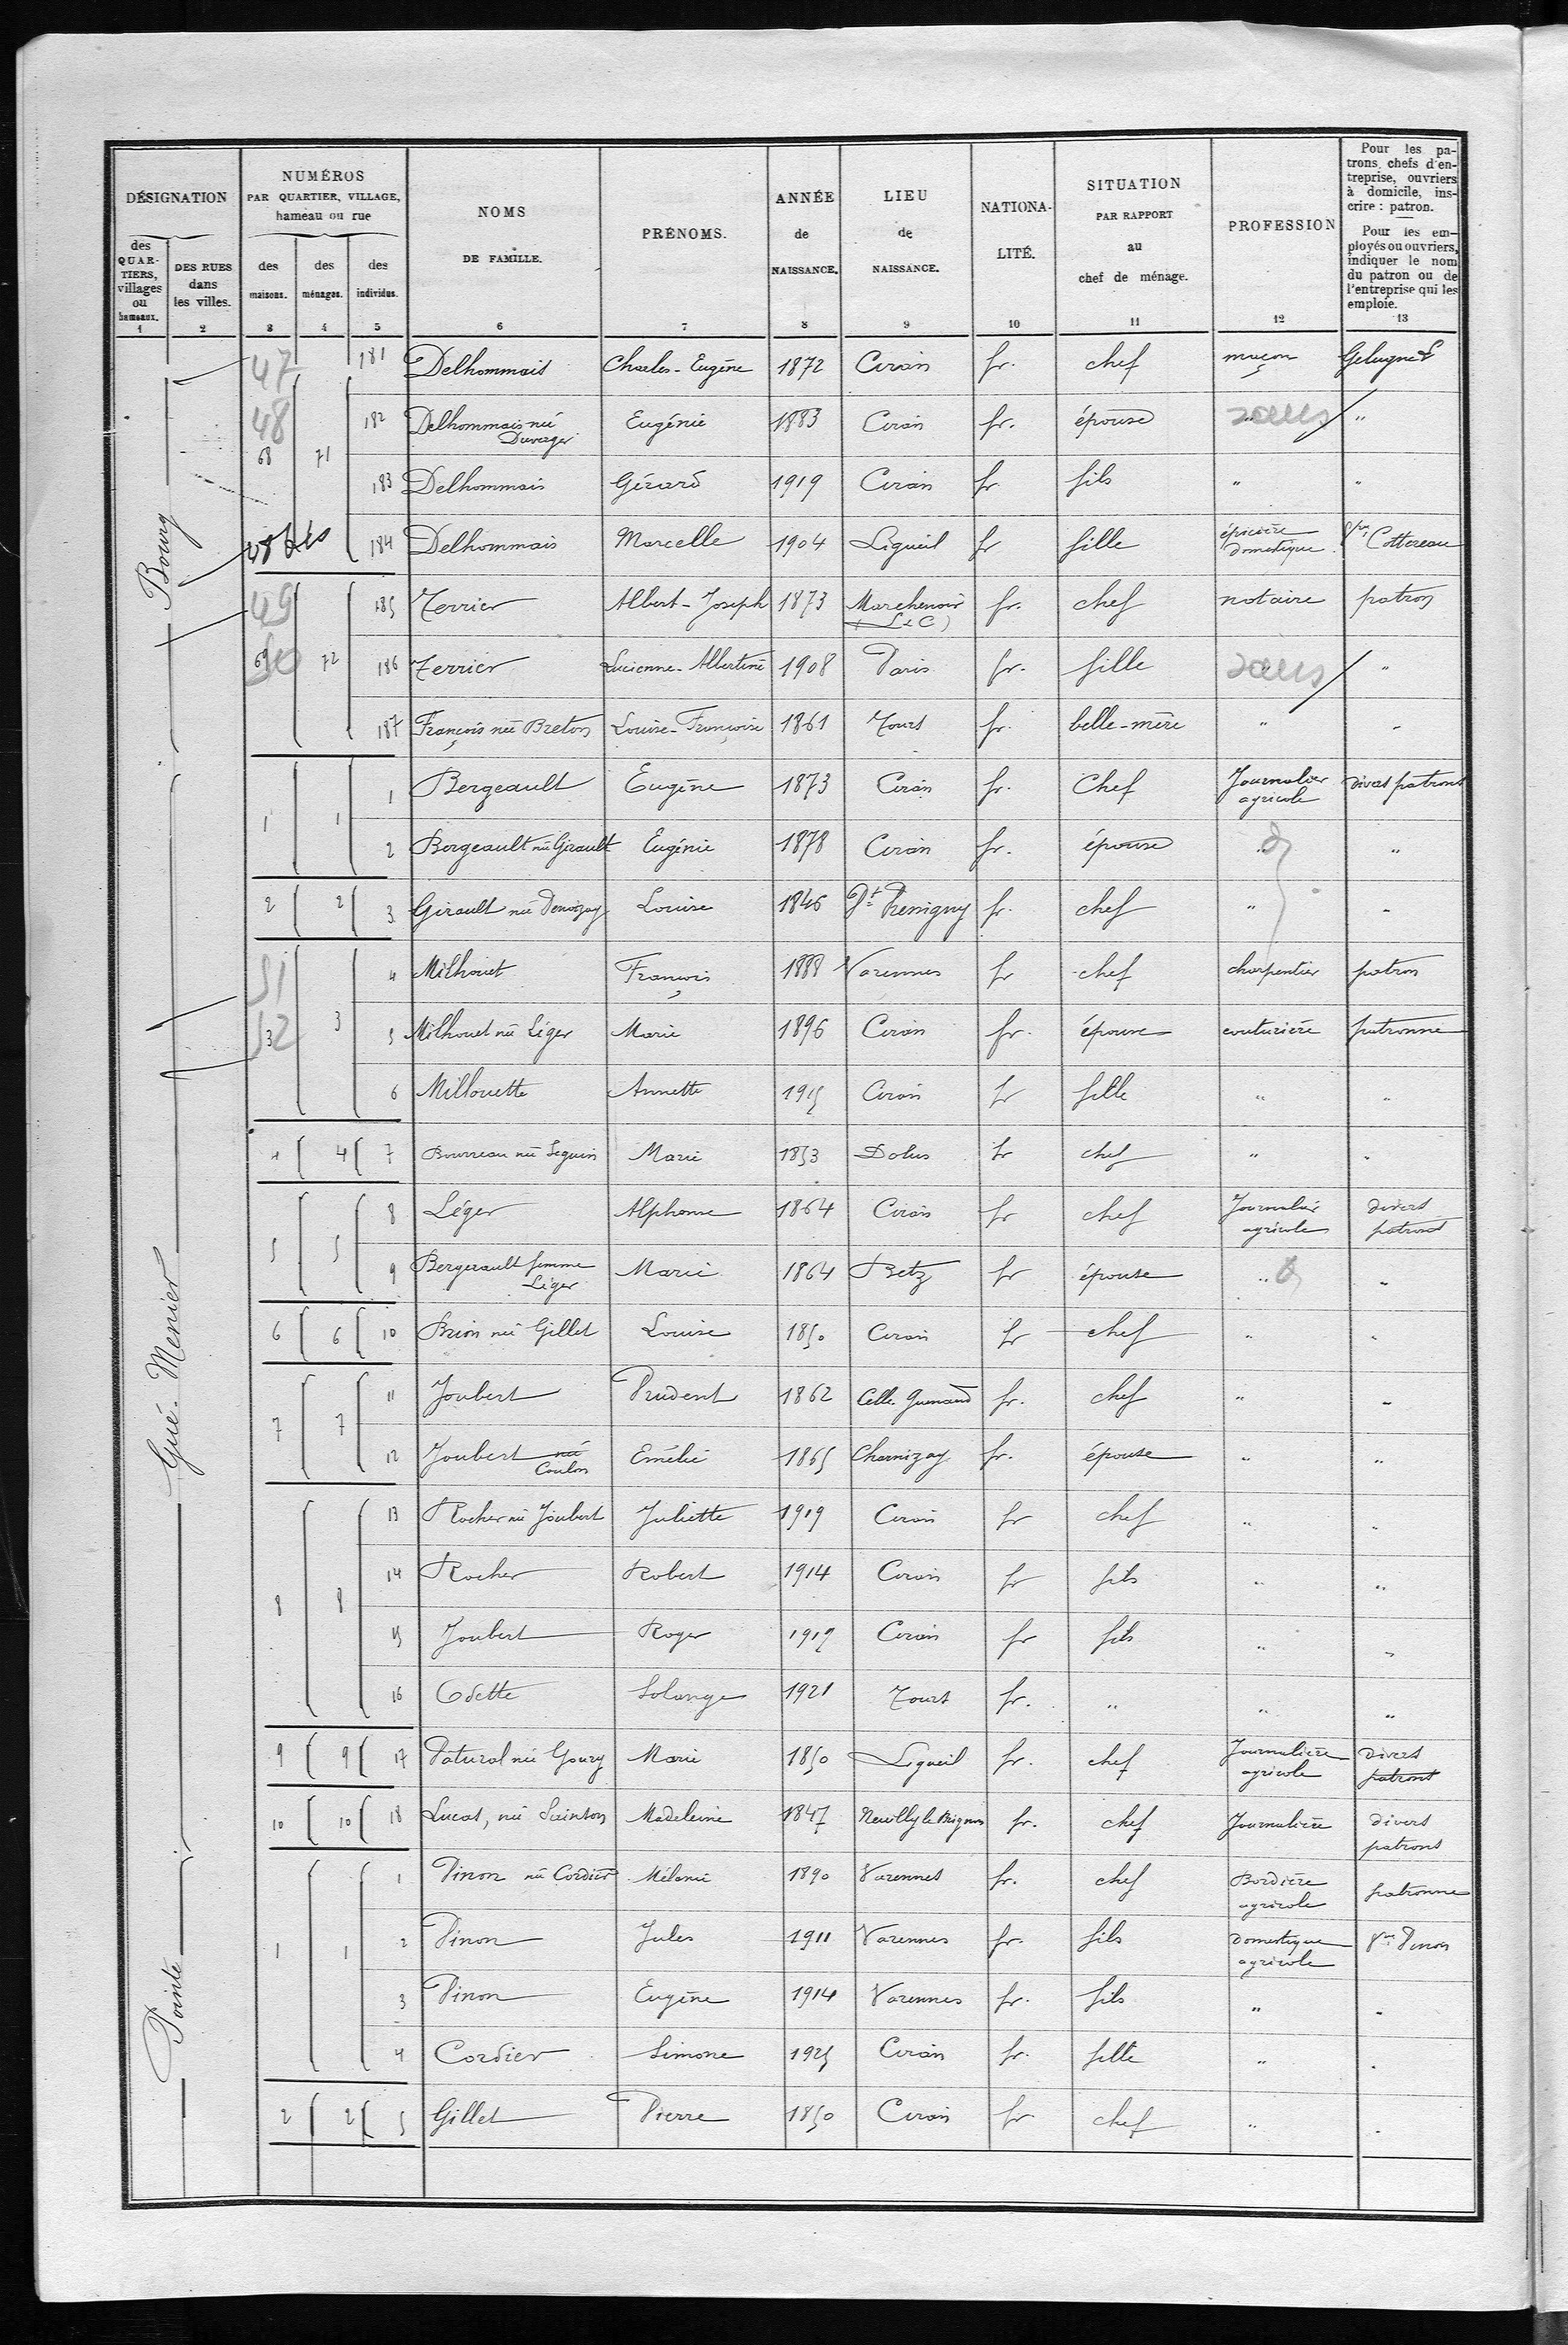 DÉSIGNATION
des QUARTIERS, villages ou hameaux. 1
DES RUES dans les villes. 2
NUMÉROS PAR QUARTIER, VILLAGE, hameau ou rue
des maisons. 3
des ménages. 4
des individus. 5
NOMS DE FAMILLE. 6
PRÉNOMS. 7
ANNÉE de NAISSANCE. 8
LIEU de NAISSANCE. 9
NATIONALITÉ. 10
SITUATION PAR RAPPORT au chef de ménage. 11
PROFESSION 12
Pour les patrons, chefs d'entreprise, ouvriers à domicile, inscrire : patron.
Pour les employés ou ouvriers, indiquer le nom du patron ou de l'entreprise qui les emploie. 13
Bourg
47 181 Delhommais Charles-Eugène 1872 Ciran fr. chef maçon
48 68 71 182 Delhommais née Duverger Eugénie 1883 Ciran fr. épouse sans "
183 Delhommais Gérard 1919 Ciran fr fils " "
48 bis 184 Delhommais Marcelle 1904 Ligueil fr fille épicière domestique Vve Cottereau
49 185 Terrier Albert-Joseph 1873 Marchenoir (L & C) fr. chef notaire patron
50 69 72 186 Terrier Lucienne-Albertine 1908 Paris fr. fille sans "
187 François née Breton Louise-Françoise 1861 Tours fr. belle-mère " "
Gué-Menier
1 1 1 Bergeault Eugène 1873 Ciran fr. Chef Journalier agricole divers patrons
2 Bergeault née Girault Eugénie 1878 Ciran fr. épouse " "
2 2 3 Girault née Denoizay Louise 1846 Gd Pressigny fr. chef " "
51 4 Milhouet François 1888 Varennes fr chef charpentier patron
52 3 3 5 Milhouet née Léger Marie 1896 Ciran fr. épouse couturière patronne
6 Millouette Annette 1915 Ciran fr fille " "
4 4 7 Bourreau née Seguin Marie 1853 Dolus fr chef " "
5 5 8 Léger Alphonse 1864 Ciran fr chef Journalier agricole divers patrons
9 Bergerault femme Léger Marie 1864 Betz fr épouse " "
6 6 10 Brion née Gillet Louise 1850 Ciran fr chef " "
7 7 11 Joubert Prudent 1862 Celle Guenand fr. chef " "
12 Joubert née Coulon Emélie 1865 Charnizay fr. épouse " "
8 8 13 Rocher née Joubert Juliette 1919 Ciran fr chef " "
14 Rocher Robert 1914 Ciran fr fils " "
15 Joubert Roger 1919 Ciran fr fils " "
16 Odette Solange 1921 Tours fr. " " "
9 9 17 Patural née Goury Marie 1850 Ligueil fr. chef Journalière agricole divers patrons
10 10 18 Lucas, née Sainton Madeleine 1847 Neuilly le Brignon fr. chef Journalière divers patrons
Pointe
1 1 1 Pinon née Cordier Mélanie 1890 Varennes fr. chef Bordière agricole patronne
2 Pinon Jules 1911 Varennes fr. fils Domestique agricole Vve Pinon
3 Pinon Eugène 1914 Varennes fr. fils " "
4 Cordier Simone 1925 Ciran fr. fille " "
2 2 5 Gillet Pierre 1850 Ciran fr chef " "